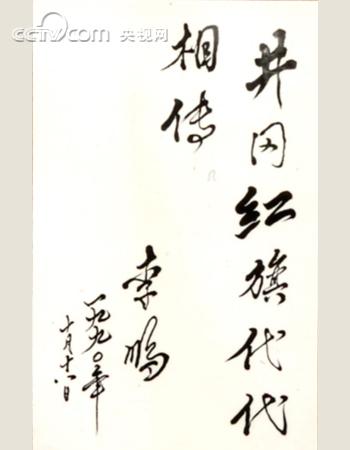 CCTV.com 央视网
井冈红旗代代
相传
李鹏
一九九〇年
十月十八日